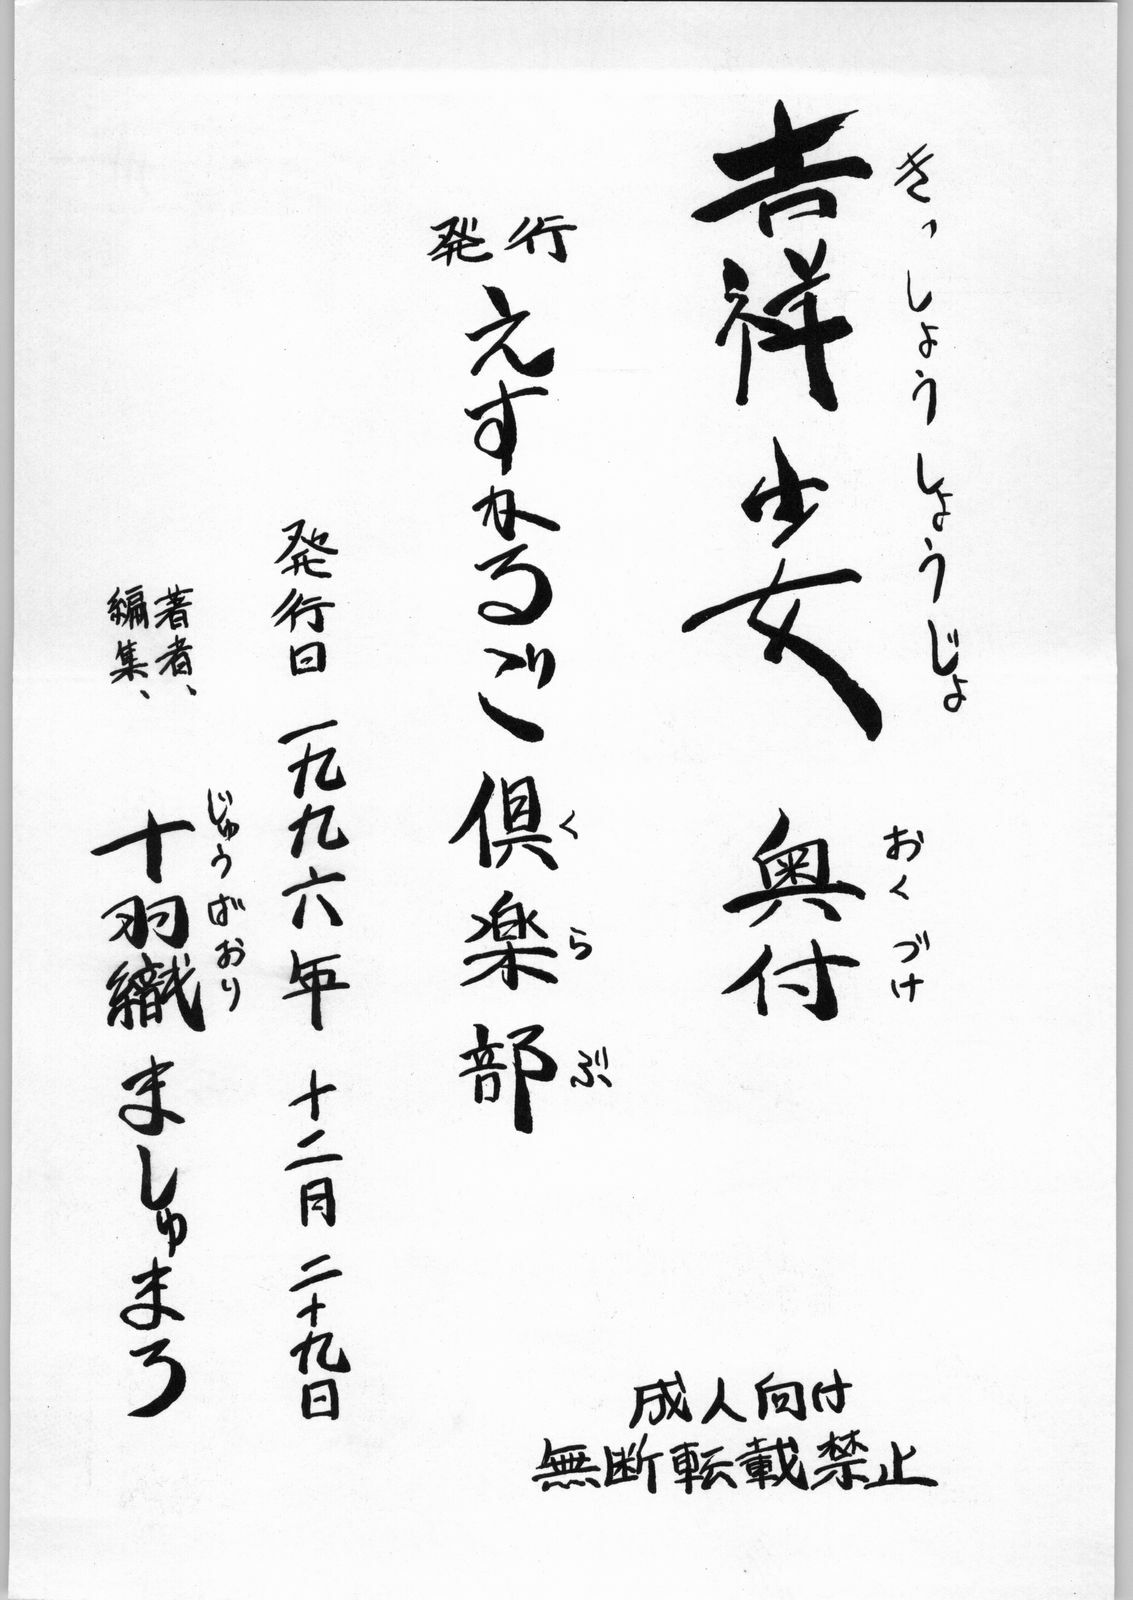 きっしょうしょうじょ
吉祥少女
おくづけ
奥付
発行
えすかるご倶楽部
くらぶ
発行日 一九九六年 十二月 二十九日
著者、
編集、
じゅうばおり
十羽織ましゅまろ
成人向け
無断転載禁止